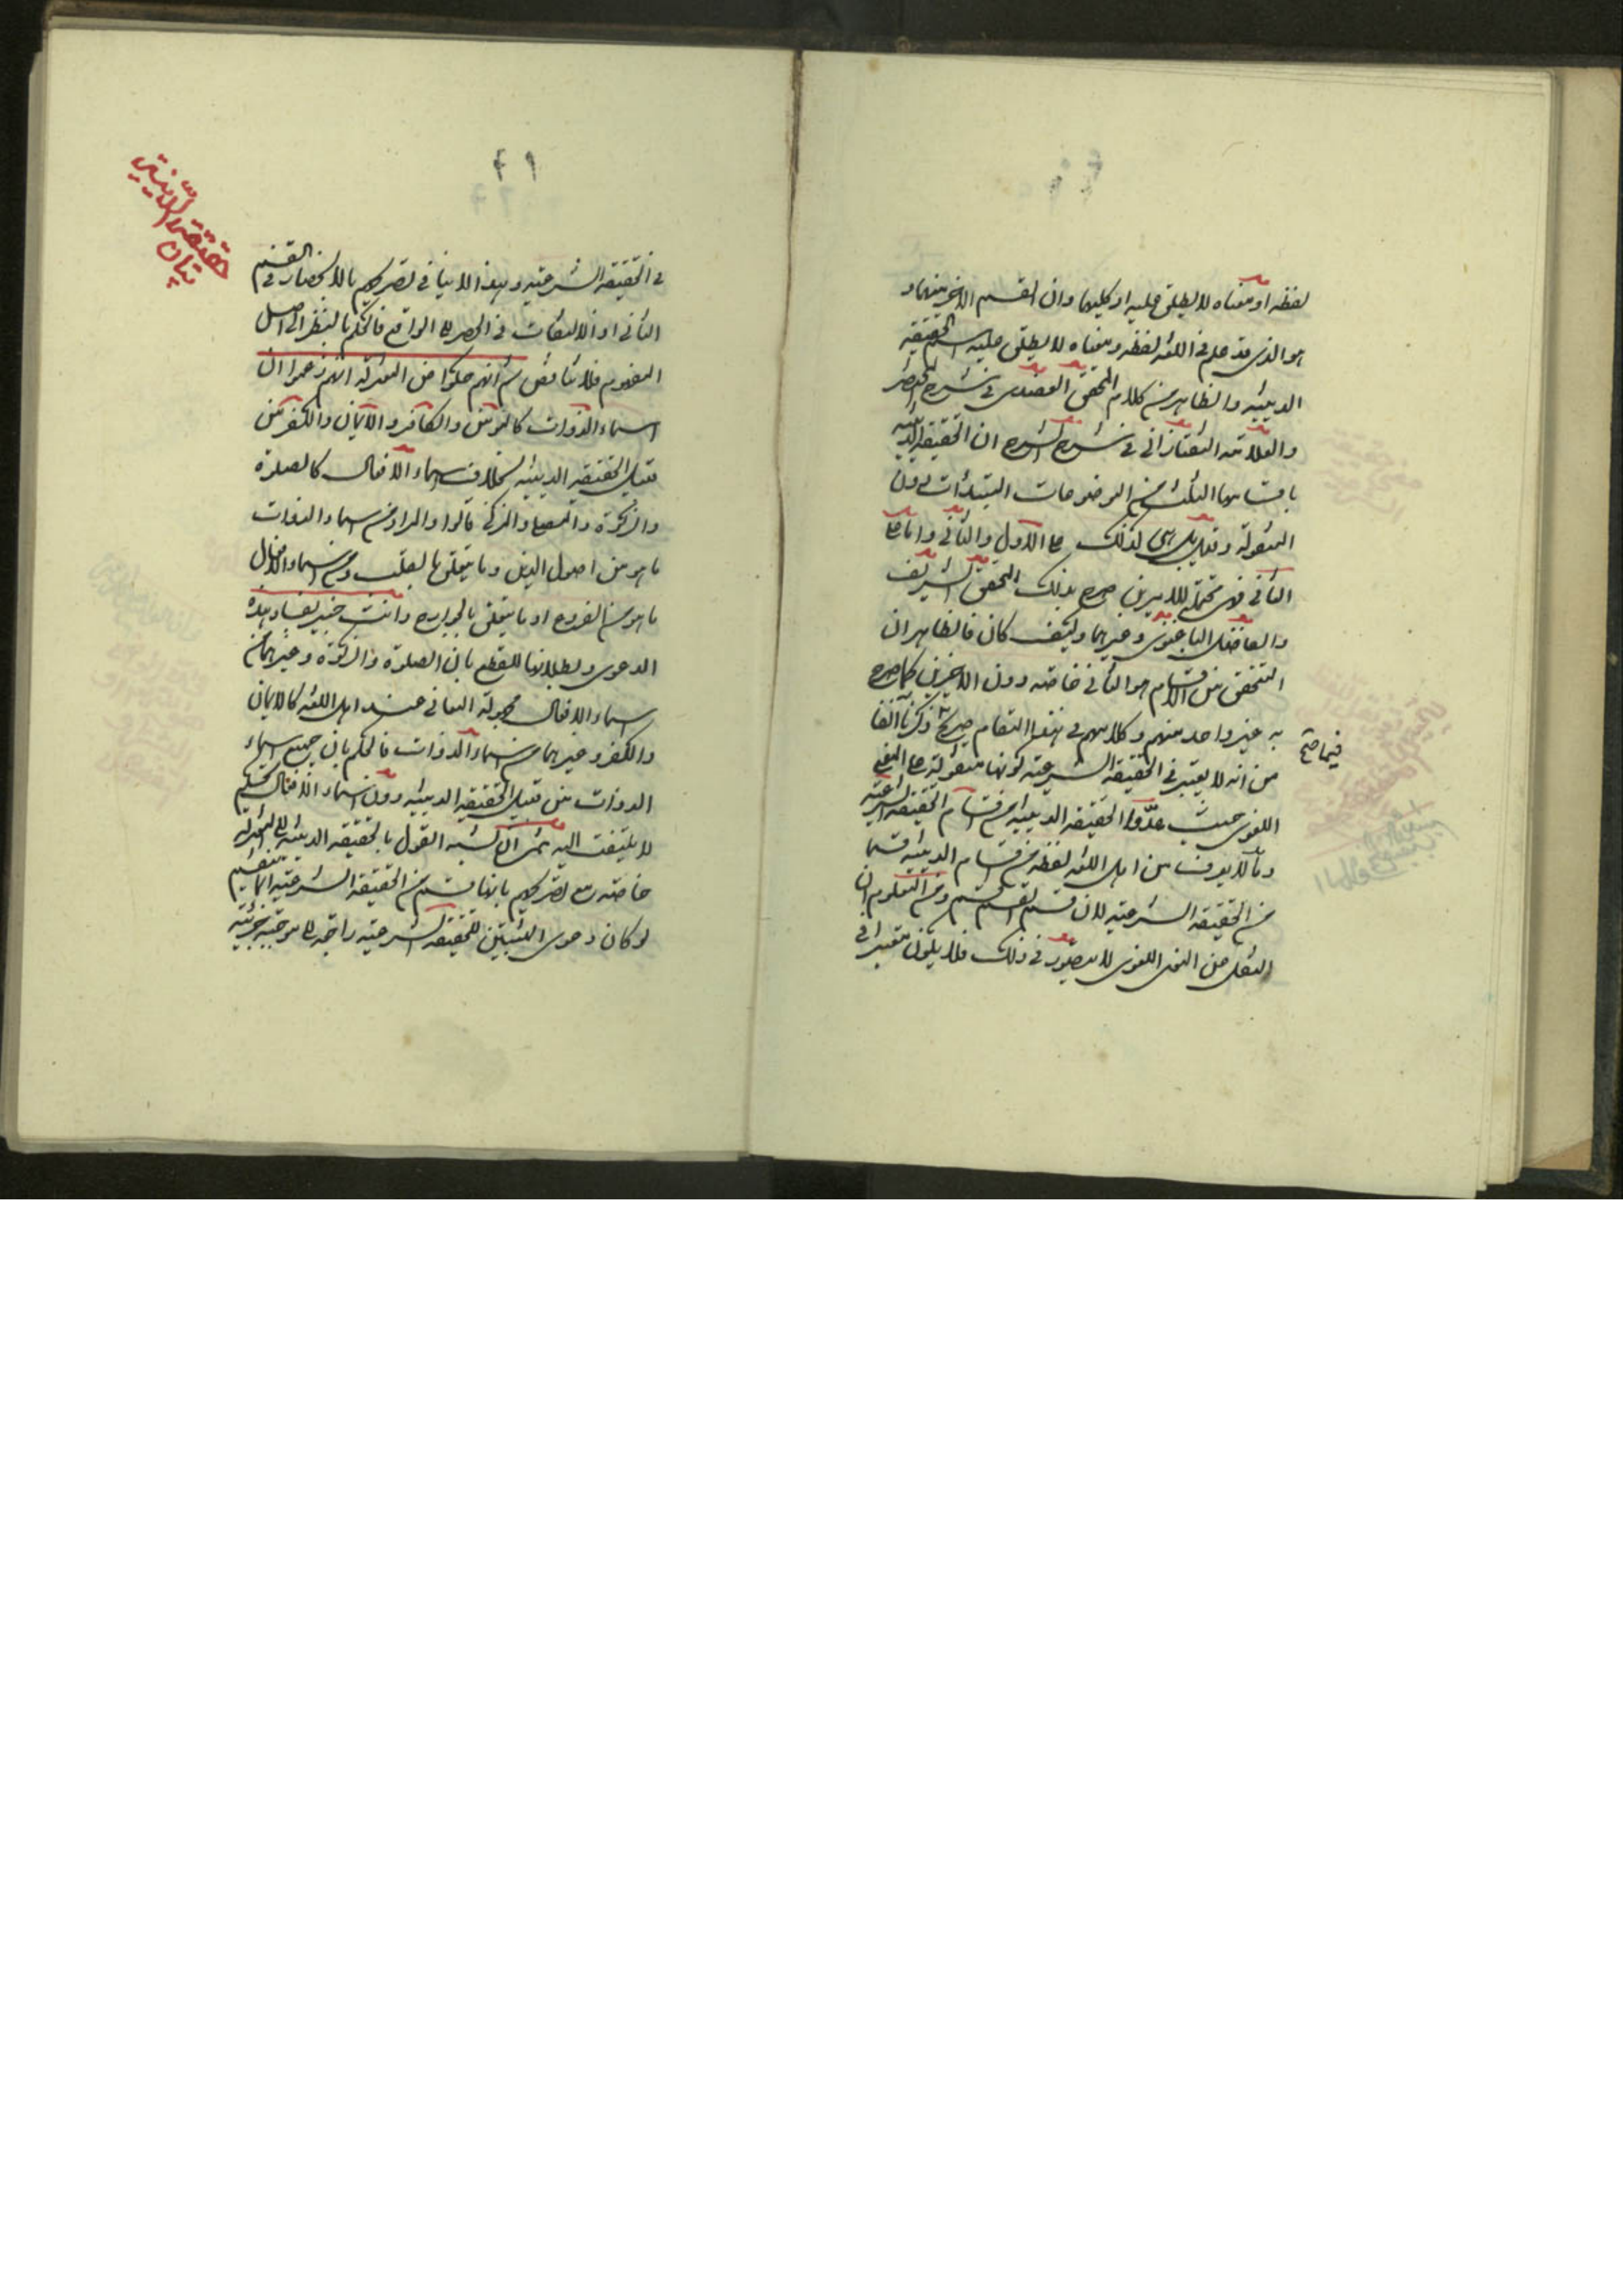 لفظه او معناه لا يطلق عليه او كليهما وان القسم الاخر منهما و
هو الذى قد علم فى اللغة لفظه ومعناه لا يطلق عليه اسم الحقيقة
الدينية والظاهر من كلام المحقق العضدى فى شرح المختصر
والعلامة التفتازانى فى شرح الشرح ان الحقيقة الدينية
باقسامها الثلثة من الموضوعات المبتدأت دون
المنقولة ولعل بل هى كذلك على الاول والثانى واما على
الثانى فهى محتملة للامرين صرح بذلك المحقق الشريف
والفاضل الباغنوى وغيرهما وكيف كان فالظاهر ان
المتحقق من الاقسام هو الثانى خاصة دون الاخيرين كما صرح
به غير واحد منهم وكلامهم فى هذا المقام صريح فيما ذكرناه آنفا
من انه لا يعتبر فى الحقيقة الشرعية كونها منقولة عن المعنى
اللغوى حيث عدّوا الحقيقة الدينية من اقسام الحقيقة الشرعية
وما لا يعرف من اهل اللغة لفظه من اقسام الدينية قسما
من الحقيقة الشرعية لان قسم القسم قسم ومن المعلوم ان
النقل عن المعنى اللغوى لا يتصور فى ذلك فلا يكون معتبرا فى
فيما صح
٢١
فى الحقيقة الشرعية وهذا لا ينافى تصريحهم بالانحصار فى القسم
الثانى اذ الالتفات فى الحصر الى الواقع فالحكم بالنظر الى اصل
المفهوم فلا تناقض ثم انهم حكوا عن المعتزلة انهم زعموا ان
اسماء الذوات كالمؤمن والكافر والايمان والكفر من
قبيل الحقيقة الدينية بخلاف اسماء الافعال كالصلوة
والزكوة والمصلى والمزكى قالوا والمراد من اسماء الذوات
ما هو من اصول الدين وما يتعلق بالقلب ومن اسماء الافعال
ما هو من الفروع او ما يتعلق بالجوارح وانت خبير بفساد هذه
الدعوى وبطلانها للقطع بان الصلوة والزكوة وغيرهما من
اسماء الافعال مجهولة المعانى عند اهل اللغة كالايمان
والكفر وغيرهما من اسماء الذوات فالحكم بان جميع اسماء
الذوات من قبيل الحقيقة الدينية دون اسماء الافعال تحكم
لا يلتفت اليه ثم ان نسبة القول بالحقيقة الدينية الى المعتزلة
خاصة مع تصريحهم بانها قسم من الحقيقة الشرعية انما يستقيم
لو كان دعوى المثبتين للحقيقة الشرعية راجعة الى موجبة جزئية
بيان
حقيقة الدينية